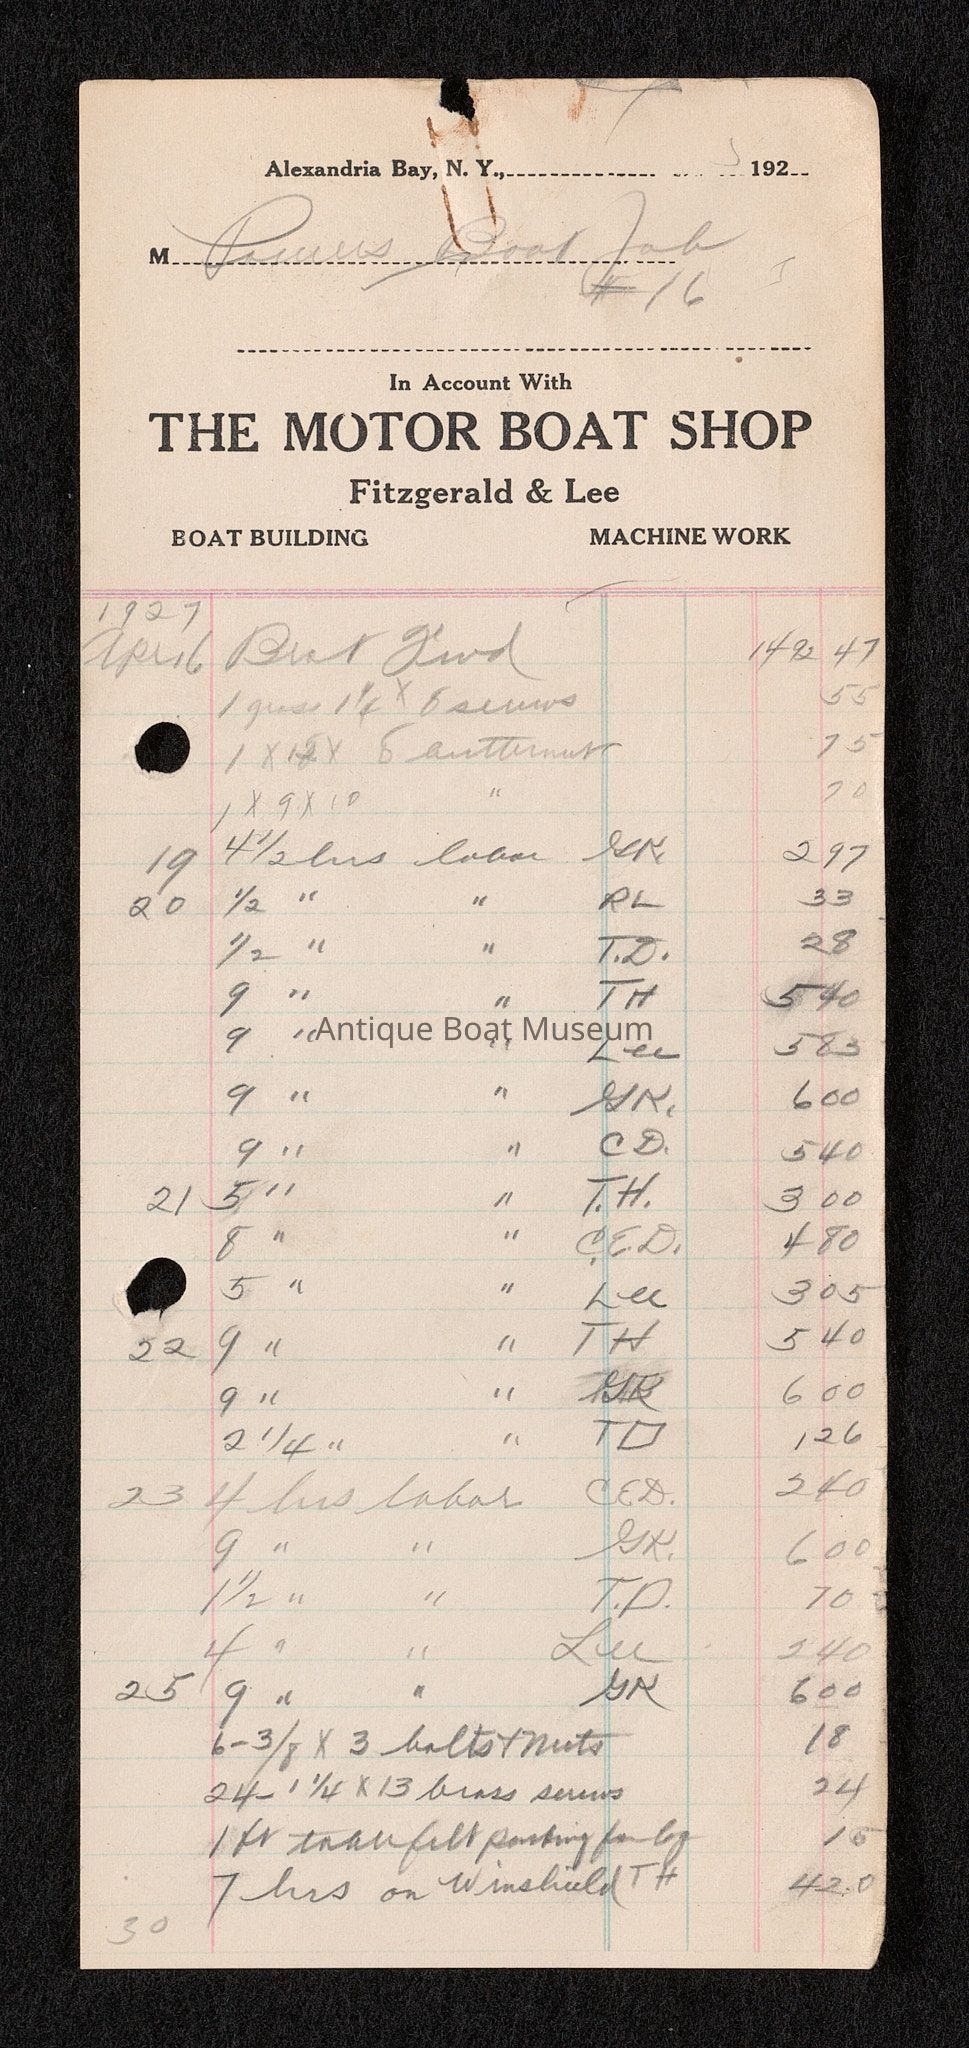 Alexandria Bay, N. Y., 192
M Powers Boat Job
# 16
In Account With
THE MOTOR BOAT SHOP
Fitzgerald & Lee
BOAT BUILDING MACHINE WORK
1927
Apr 16 Brot Fwd 1492 47
1 gross 1 1/4 x 8 screws 55
1 X 12 X butternut 75
1 X 9 X 10 " 70
19 4 1/2 hrs labor GK. 2 97
20 1/2 " " RL 33
1/2 " " T.D. 28
9 " " TH 5 40
9 " " Lee 5 83
Antique Boat Museum
9 " " GK. 6 00
9 " " C D. 5 40
21 5 " " T.H. 3 00
8 " " C.E.D. 4 80
5 " " Lee 3 05
22 9 " " TH 5 40
9 " " GK 6 00
2 1/4 " " TD 1 26
23 4 hrs labor CED. 2 40
9 " " GK. 6 00
1 1/2 " " T.D. 70
4 " " Lee 2 40
25 9 " " GK 6 00
6-3/8 X 3 bolts + nuts 18
24- 1 1/4 X 13 brass screws 24
1 ft felt for 15
7 hrs on Winshield TH 4 20
30